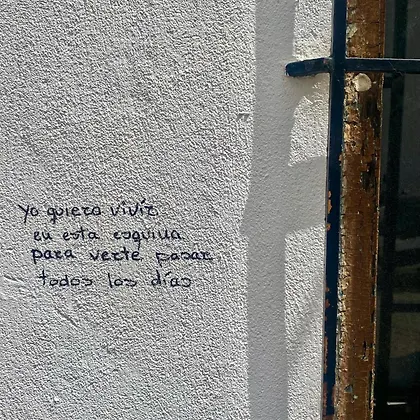 yo quiero vivir
en esta esquina
para verte pasar
todos los días